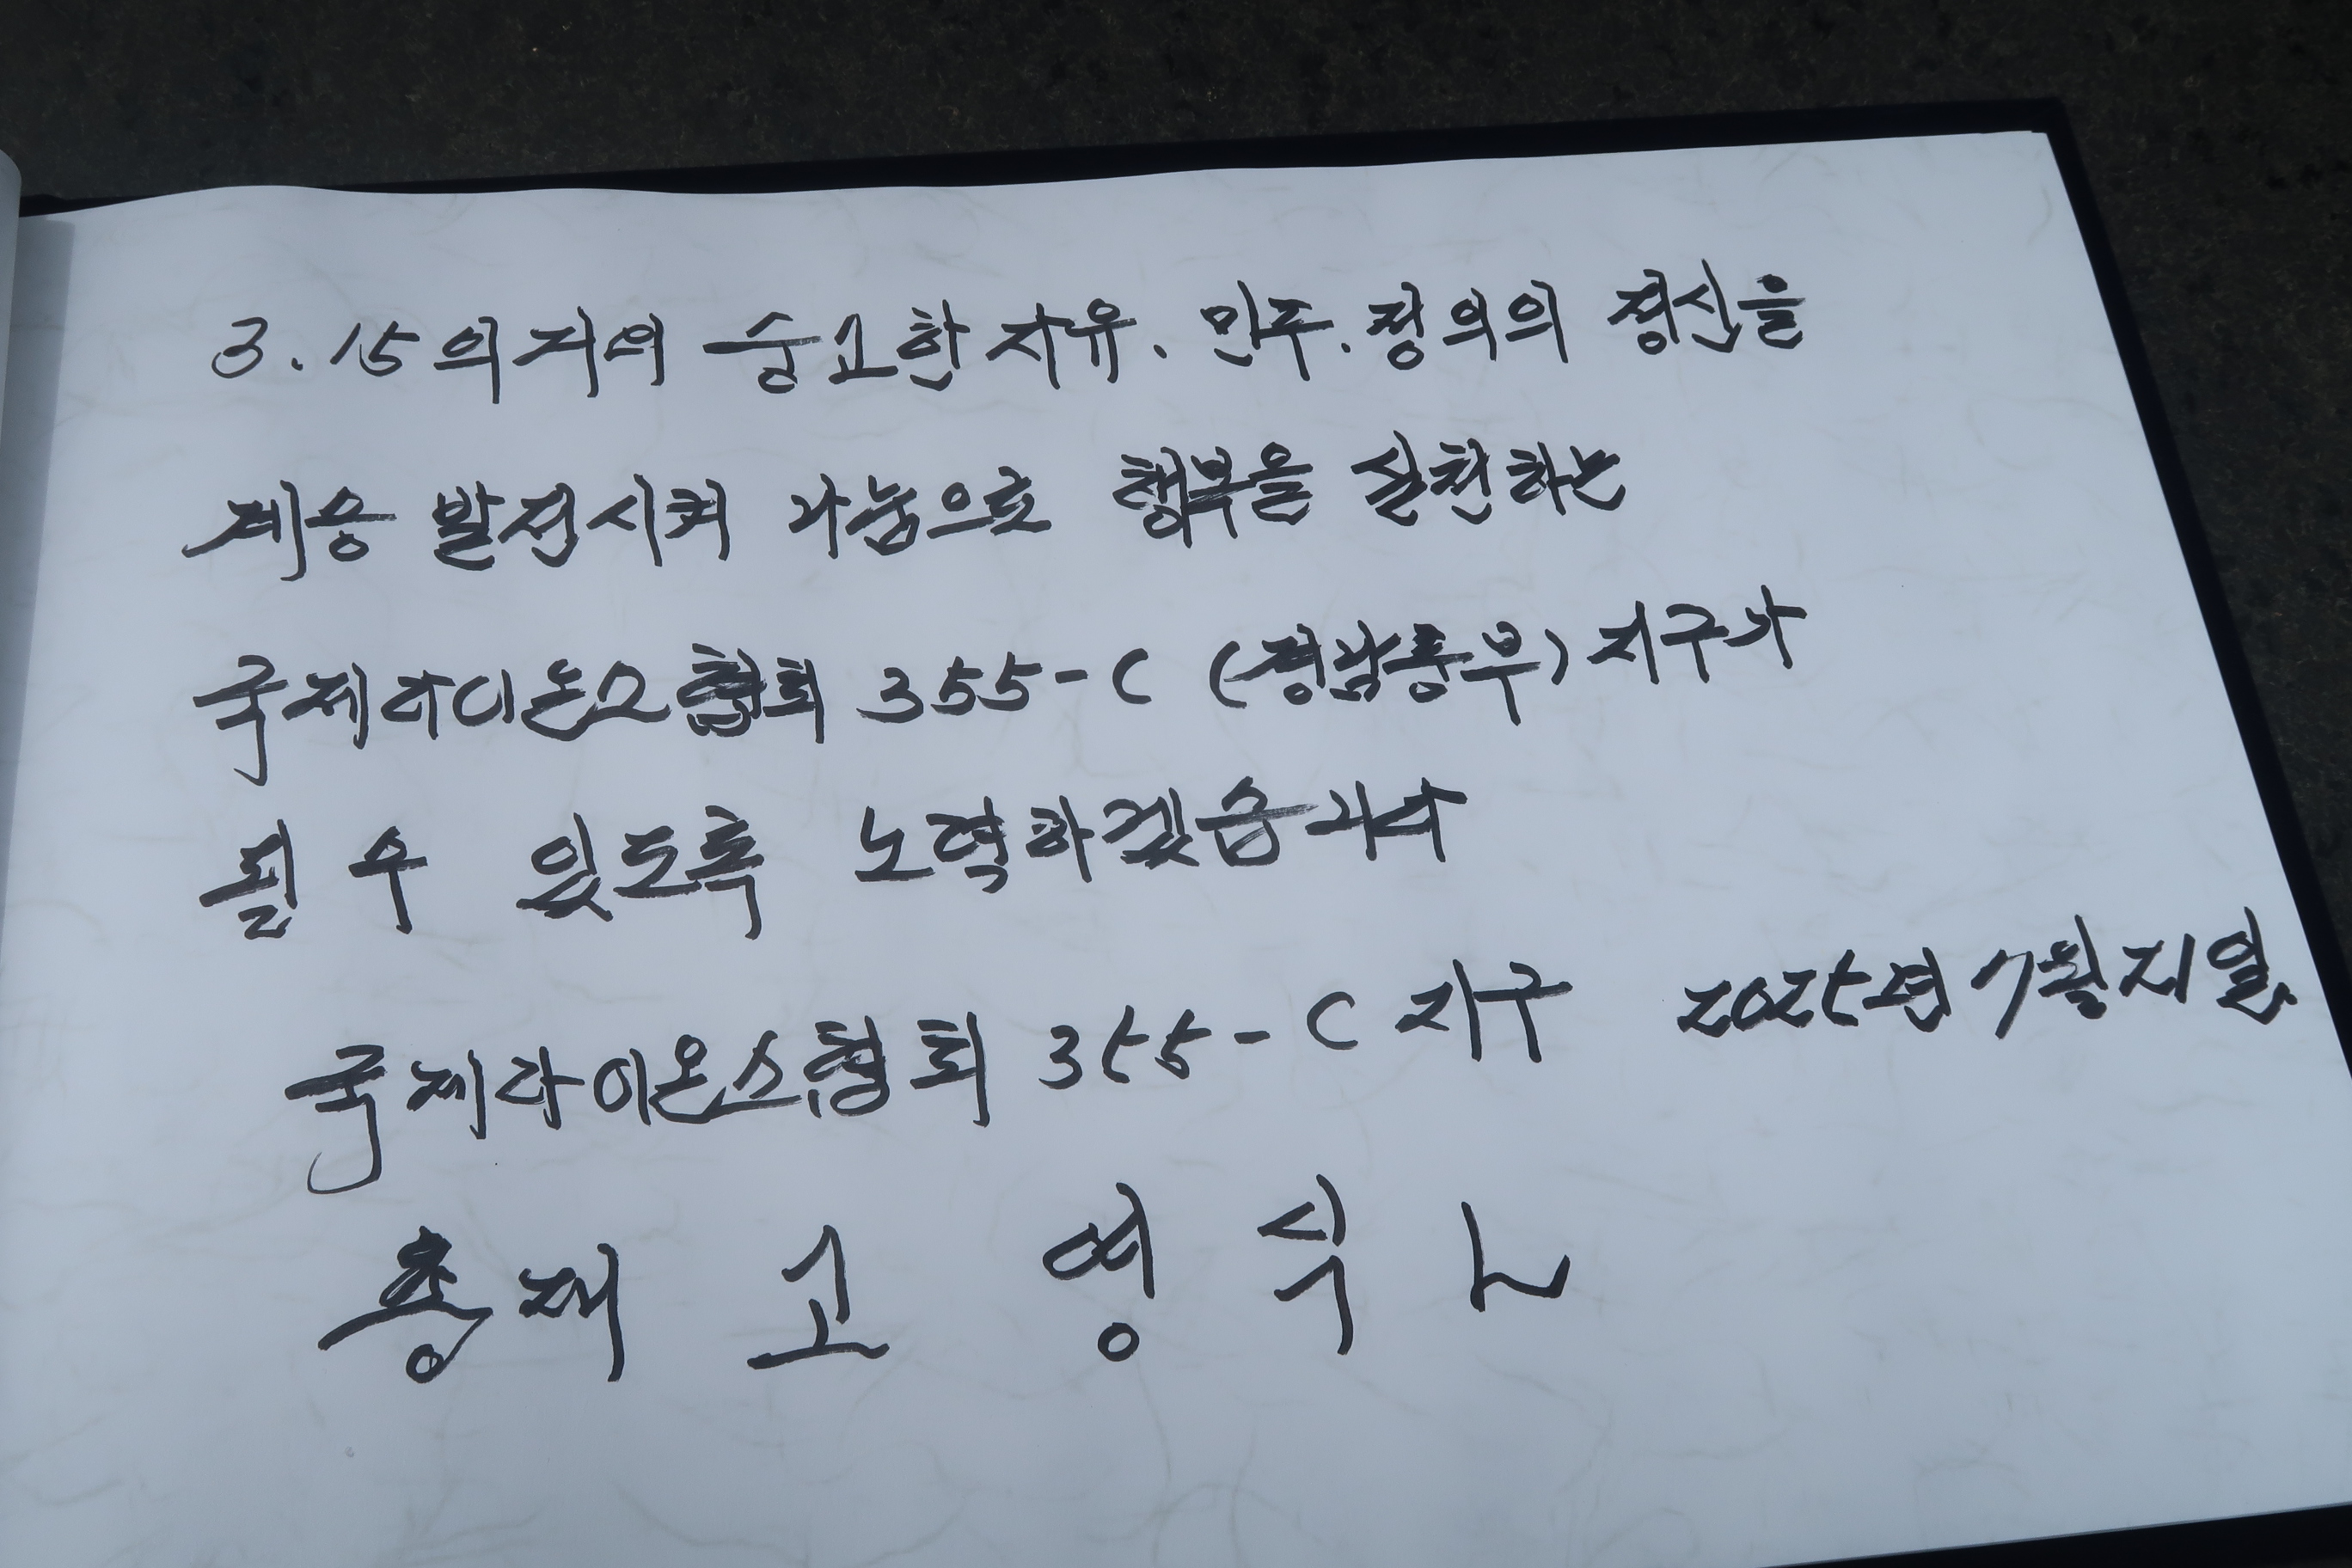 3.15의거의 숭고한 자유. 민주. 정의의 정신을
계승 발전시켜 나눔으로 행복을 실천하는
국제라이온스협회 355-C (경남중부) 지구가
될 수 있도록 노력하겠습니다
국제라이온스협회 355-C 지구 2025년 7월 21일
총재 고 영 식